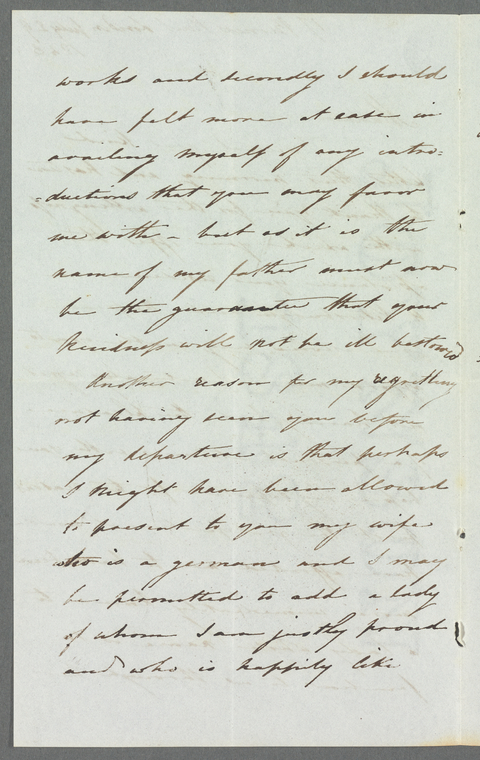 works and secondly I should
have felt more at ease in
availing myself of any intro=
=ductions that you may favor
me with – but as it is the
name of my father must now
be the guarantee that your
kindness will not be ill bestowed
Another reason for my regretting
not having seen you before
my departure is that perhaps
I might have been allowed
to present to you my wife
who is a german and I may
be permitted to add a lady
of whom I am justly proud
and who is happily like